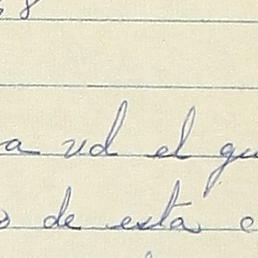 8
a ud el gu
o de esta c